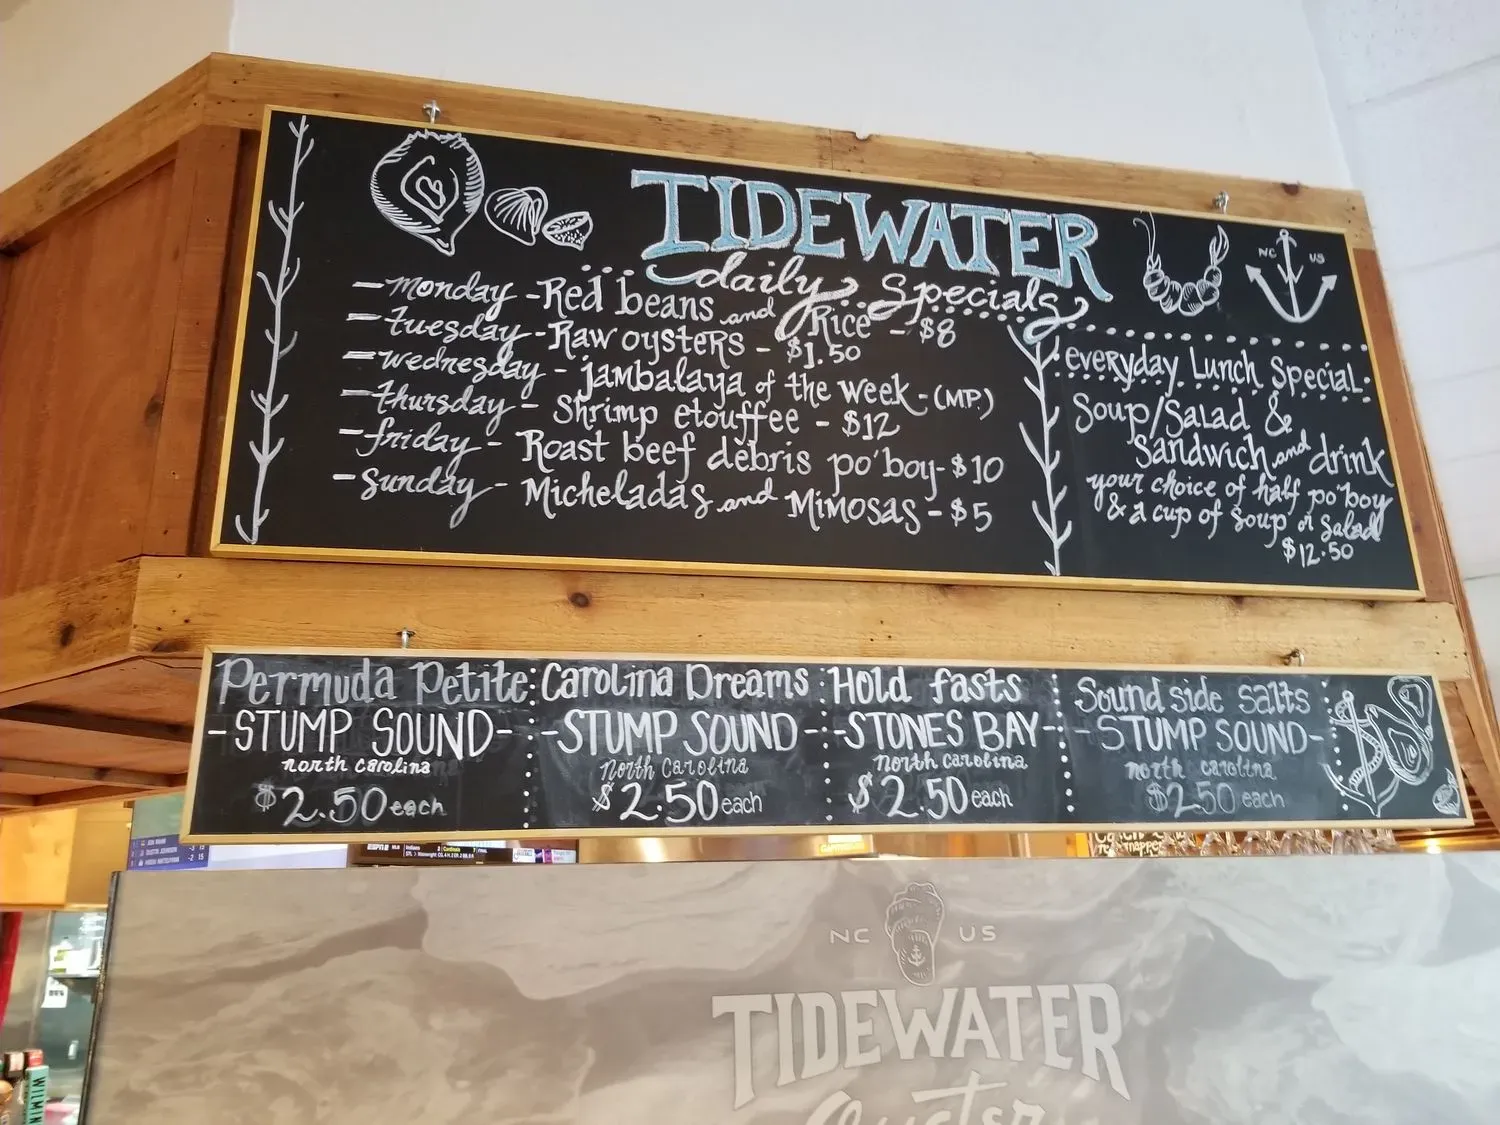 TIDEWATER
daily Specials
- monday - Red beans and Rice - $8
- tuesday - Raw oysters - $1.50
- wednesday - jambalaya of the week - (MP.)
- thursday - Shrimp etouffee - $12
- friday - Roast beef debris po'boy - $10
- Sunday - Micheladas and Mimosas - $5
NC US
everyday Lunch Special
Soup/Salad &
Sandwich and drink
your choice of half po'boy
& a cup of soup or salad
$12.50
Permuda Petite
- STUMP SOUND -
north carolina
$2.50 each
Carolina Dreams
- STUMP SOUND -
North Carolina
$2.50 each
Hold fasts
- STONES BAY -
north carolina
$2.50 each
Sound side salts
- STUMP SOUND -
north carolina
$2.50 each
ESPN2
NC US
TIDEWATER
Oyster
WILMIN